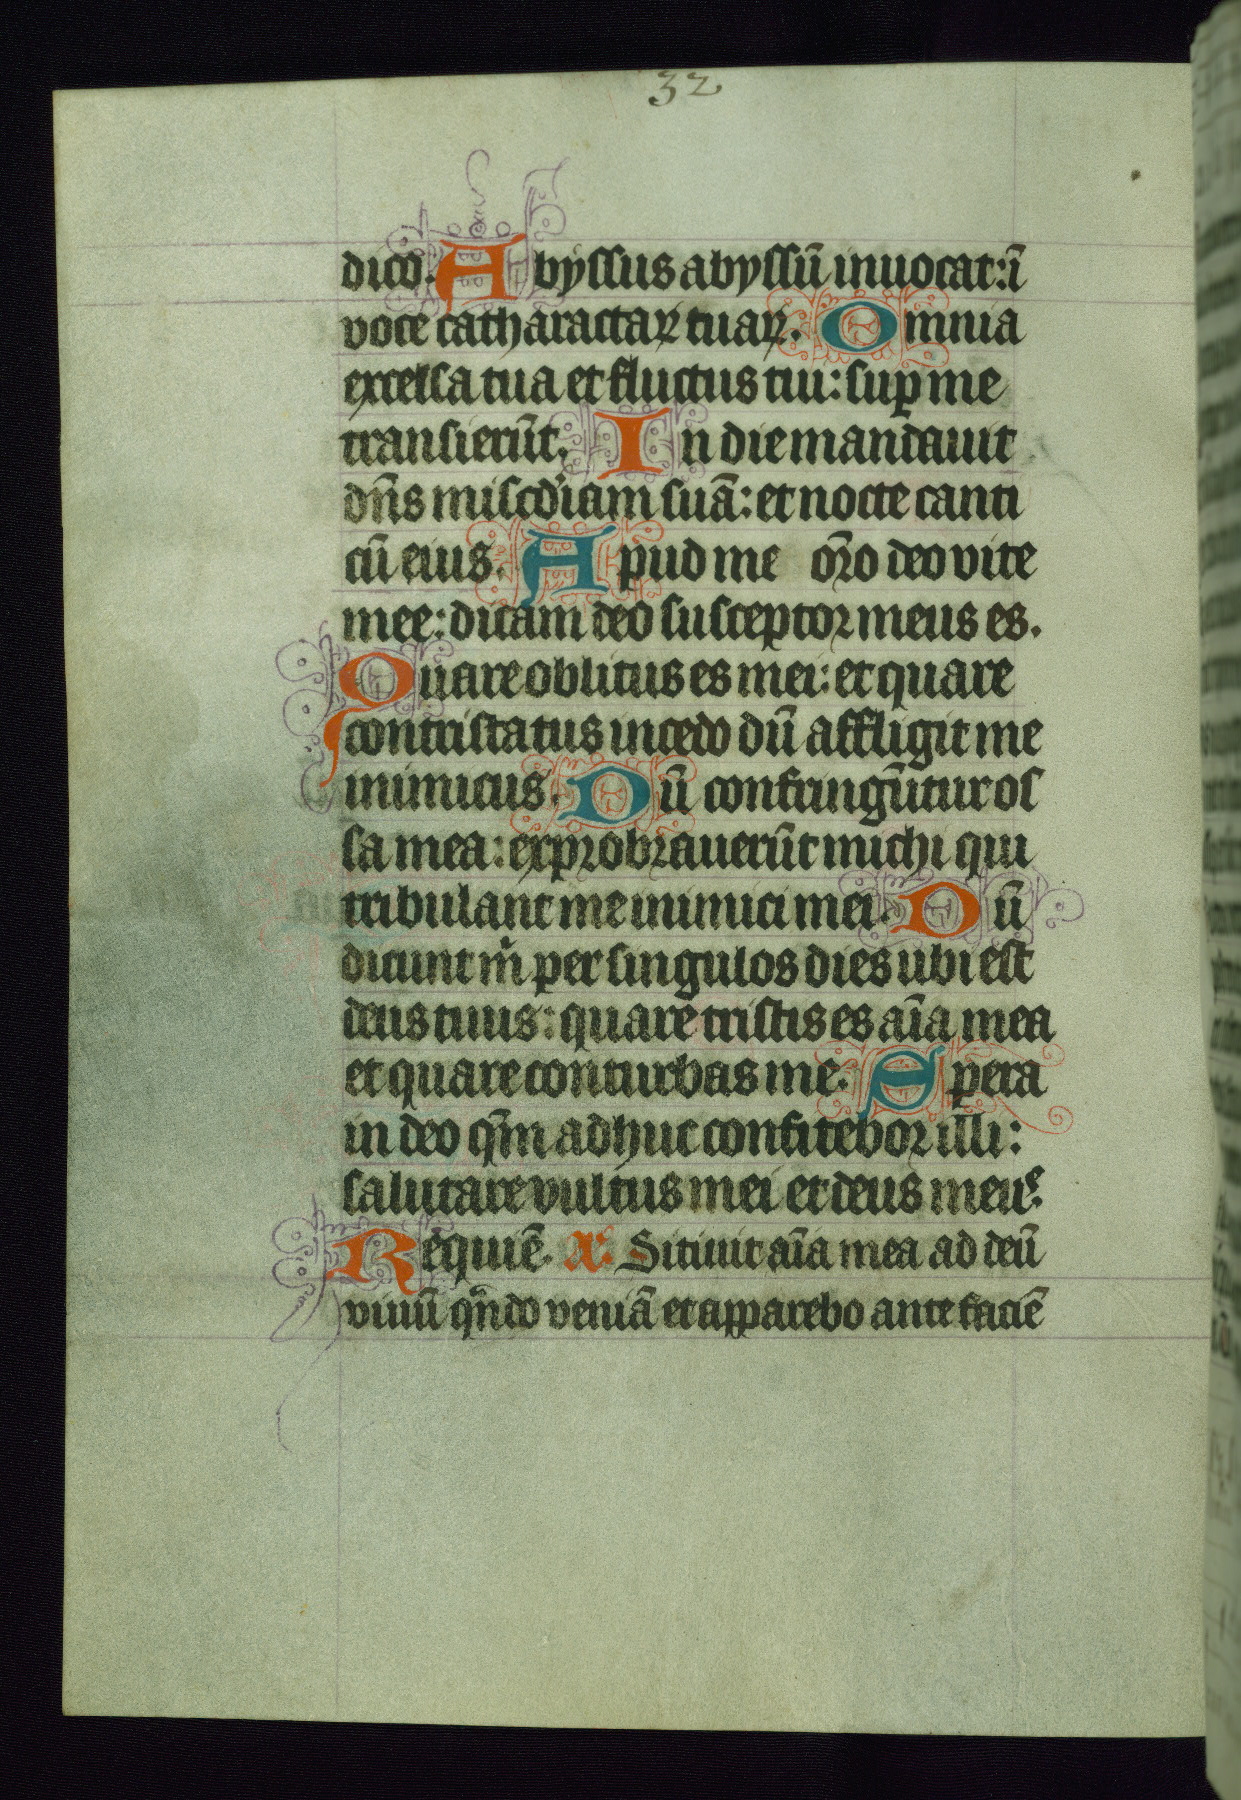 32
dico. Abyssus abyssū inuocat: ī
voce catharactaꝝ tuaꝝ. Omnia
excelsa tua et fluctus tui: suꝑ me
transierūt. In die mandauit
dn̄s miscd'iam suā: et nocte canti
cū eius. Apud me or̄o deo vite
mee: dicam deo susceptor meus es.
Quare oblitus es mei: et quare
contristatus incedo dū affligit me
inimicus. Dū confringūtur os
sa mea: exprobrauerūt michi qui
tribulant me inimici mei. Dū
dicunt m̍ per singulos dies ubi est
deus tuus: quare tristis es aīa mea
et quare conturbas me. Spera
in deo qm̄ adhuc confitebor illi:
salutare vultus mei et deus meus.
Requiē. A'. Sitiuit aīa mea ad deū
viuū qn̄do veniā et apparebo ante faciē